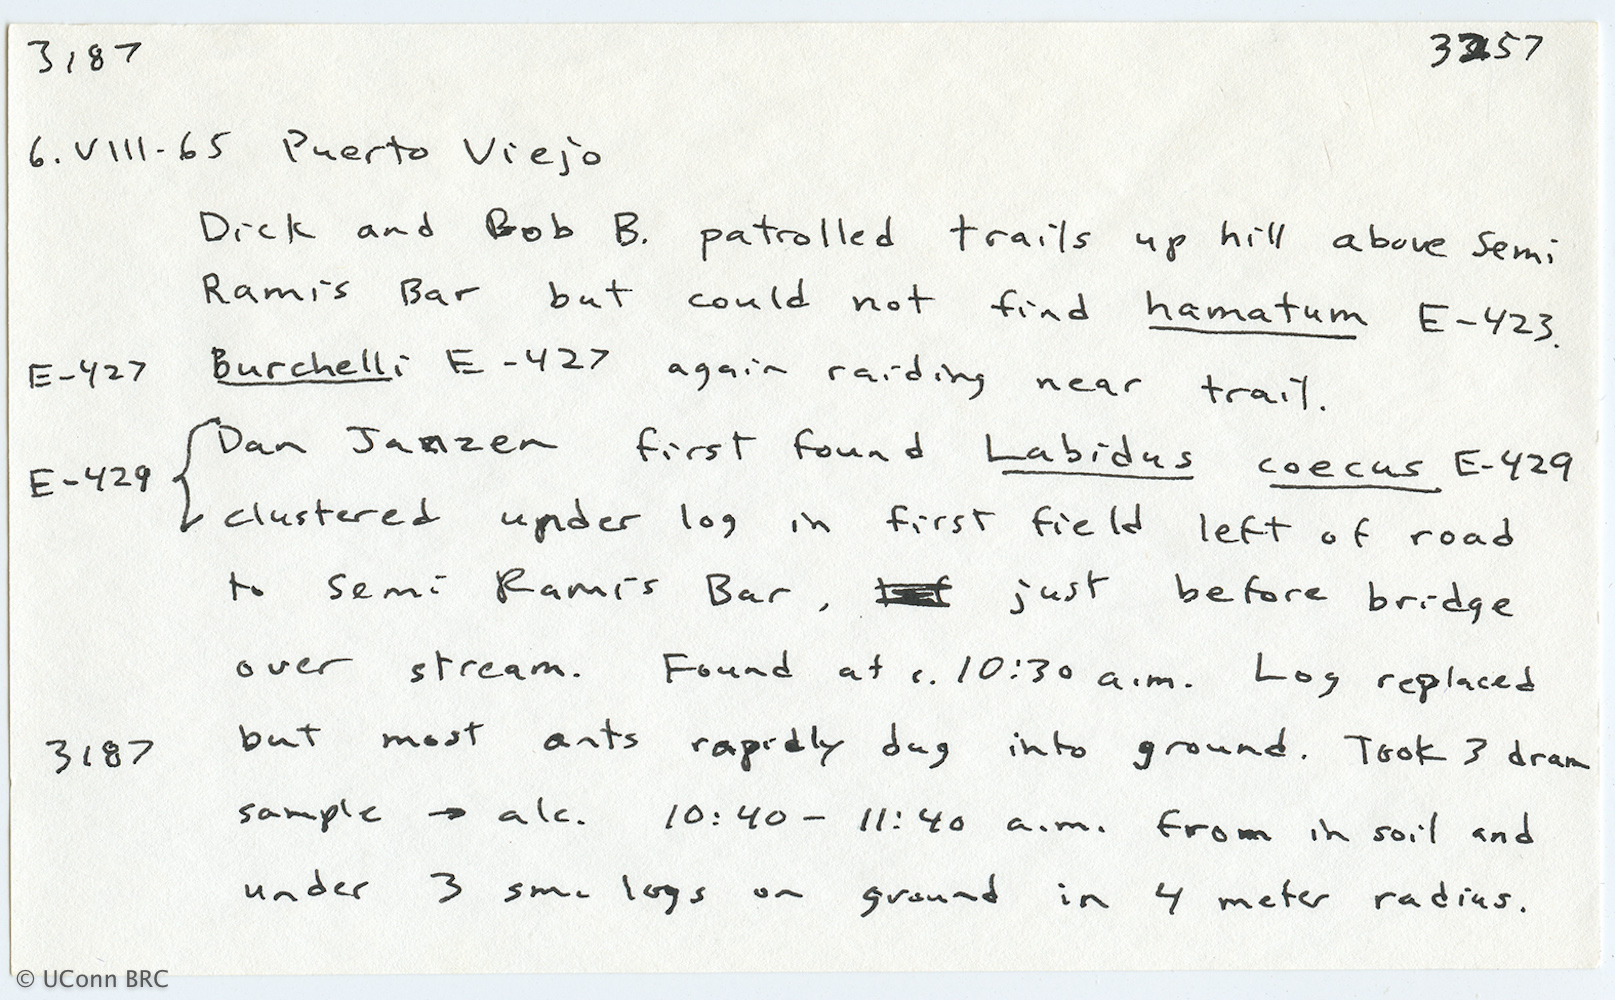 3187 3257
6.VIII-65 Puerto Viejo
Dick and Bob B. patrolled trails up hill above Semi
Ramis Bar but could not find hamatum E-423.
E-427 Burchelli E-427 again raiding near trail.
Dan Janzen first found Labidus coecus E-429
E-429 clustered under log in first field left of road
to Semi Ramis Bar, just before bridge
over stream. Found at c. 10:30 a.m. Log replaced
3187 but most ants rapidly dug into ground. Took 3 dram
sample → alc. 10:40 - 11:40 a.m. from in soil and
under 3 sm. logs on ground in 4 meter radius.
© UConn BRC